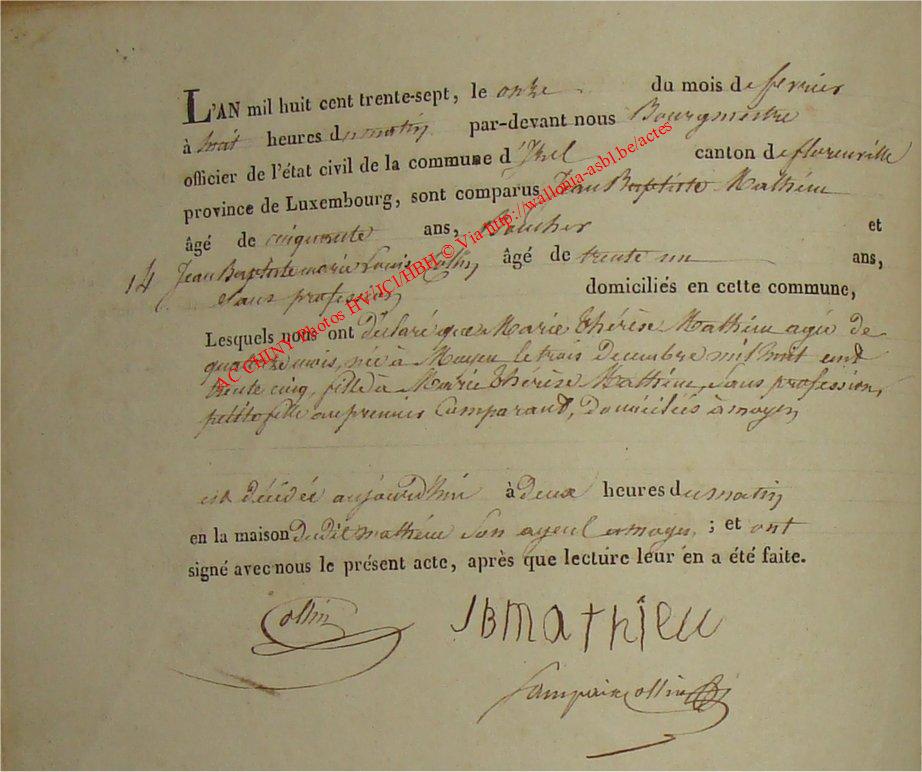 L'AN mil huit cent trente-sept, le onze du mois de fevrier
à huit heures du matin par-devant nous Bourgmestre
officier de l'état civil de la commune d'Izel canton de florenville
province de Luxembourg, sont comparus Jean Baptiste Mathieu
âgé de cinquante ans, et
14 Jean Baptiste marie Louis Collin âgé de trente un ans,
sans profession domiciliés en cette commune,
Lesquels nous ont déclaré que Marie Thérèse Mathieu agée de
quatorze mois, née à Moyen le trois Decembre mil huit cent
trente cinq, fille à Marie Thérèse Mathieu, sans profession,
petite fille au premier Comparant, Domiciliés à moyen
est décédée aujourd'hui à deux heures du matin
en la maison du dit mathieu son ayeul a moyen ; et ont
signé avec nous le présent acte, après que lecture leur en a été faite.
Collin JBMathieu
Lampair collin
AC CHINY Photos HV/JCI/HBH © Via http://wallonia-asbl.be/actes